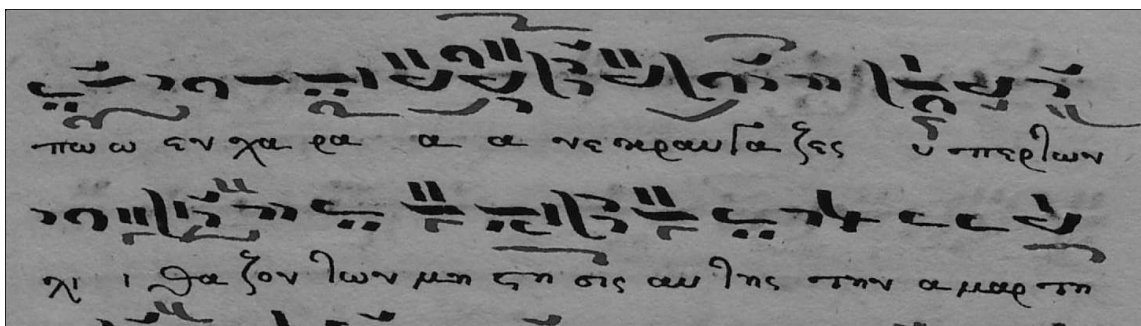 πω ω εν χα ρα α α νε κραυγα ζες υ περ των
χι ι θα ζον των μη στη σις αυ της την α μαρ τη